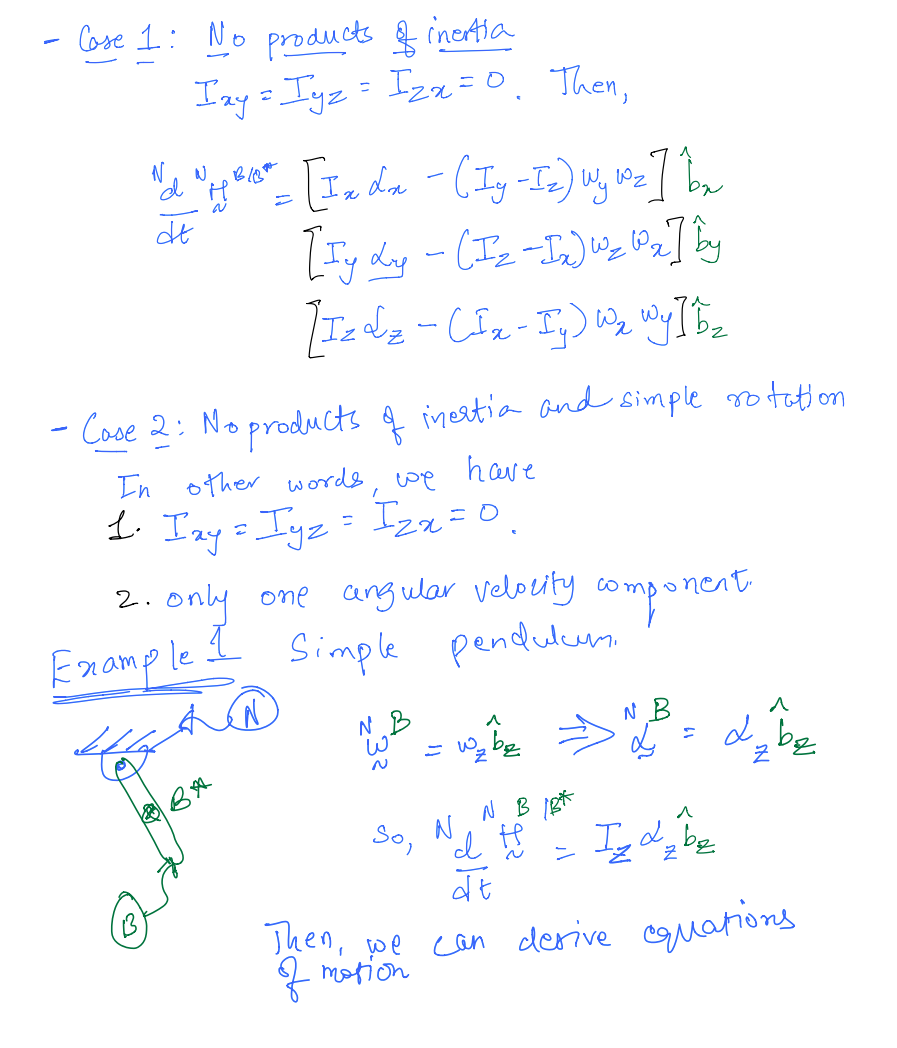 - Case 1: No products of inertia
Ixy = Iyz = Izx = 0. Then,
ᴺd/dt ᴺH̰ᴮ/ᴮ* = [Ix αx - (Iy - Iz) ωy ωz] b̂x
[Iy αy - (Iz - Ix) ωz ωx] b̂y
[Iz αz - (Ix - Iy) ωx ωy] b̂z
- Case 2: No products of inertia and simple rotation
In other words, we have
1. Ixy = Iyz = Izx = 0.
2. only one angular velocity component.
Example 1 Simple pendulum.
N
ᴺω̰ᴮ = ωz b̂z ⇒ ᴺα̰ᴮ = αz b̂z
B*
So, ᴺd/dt ᴺH̰ᴮ/ᴮ* = Iz αz b̂z
B
Then, we can derive equations
of motion